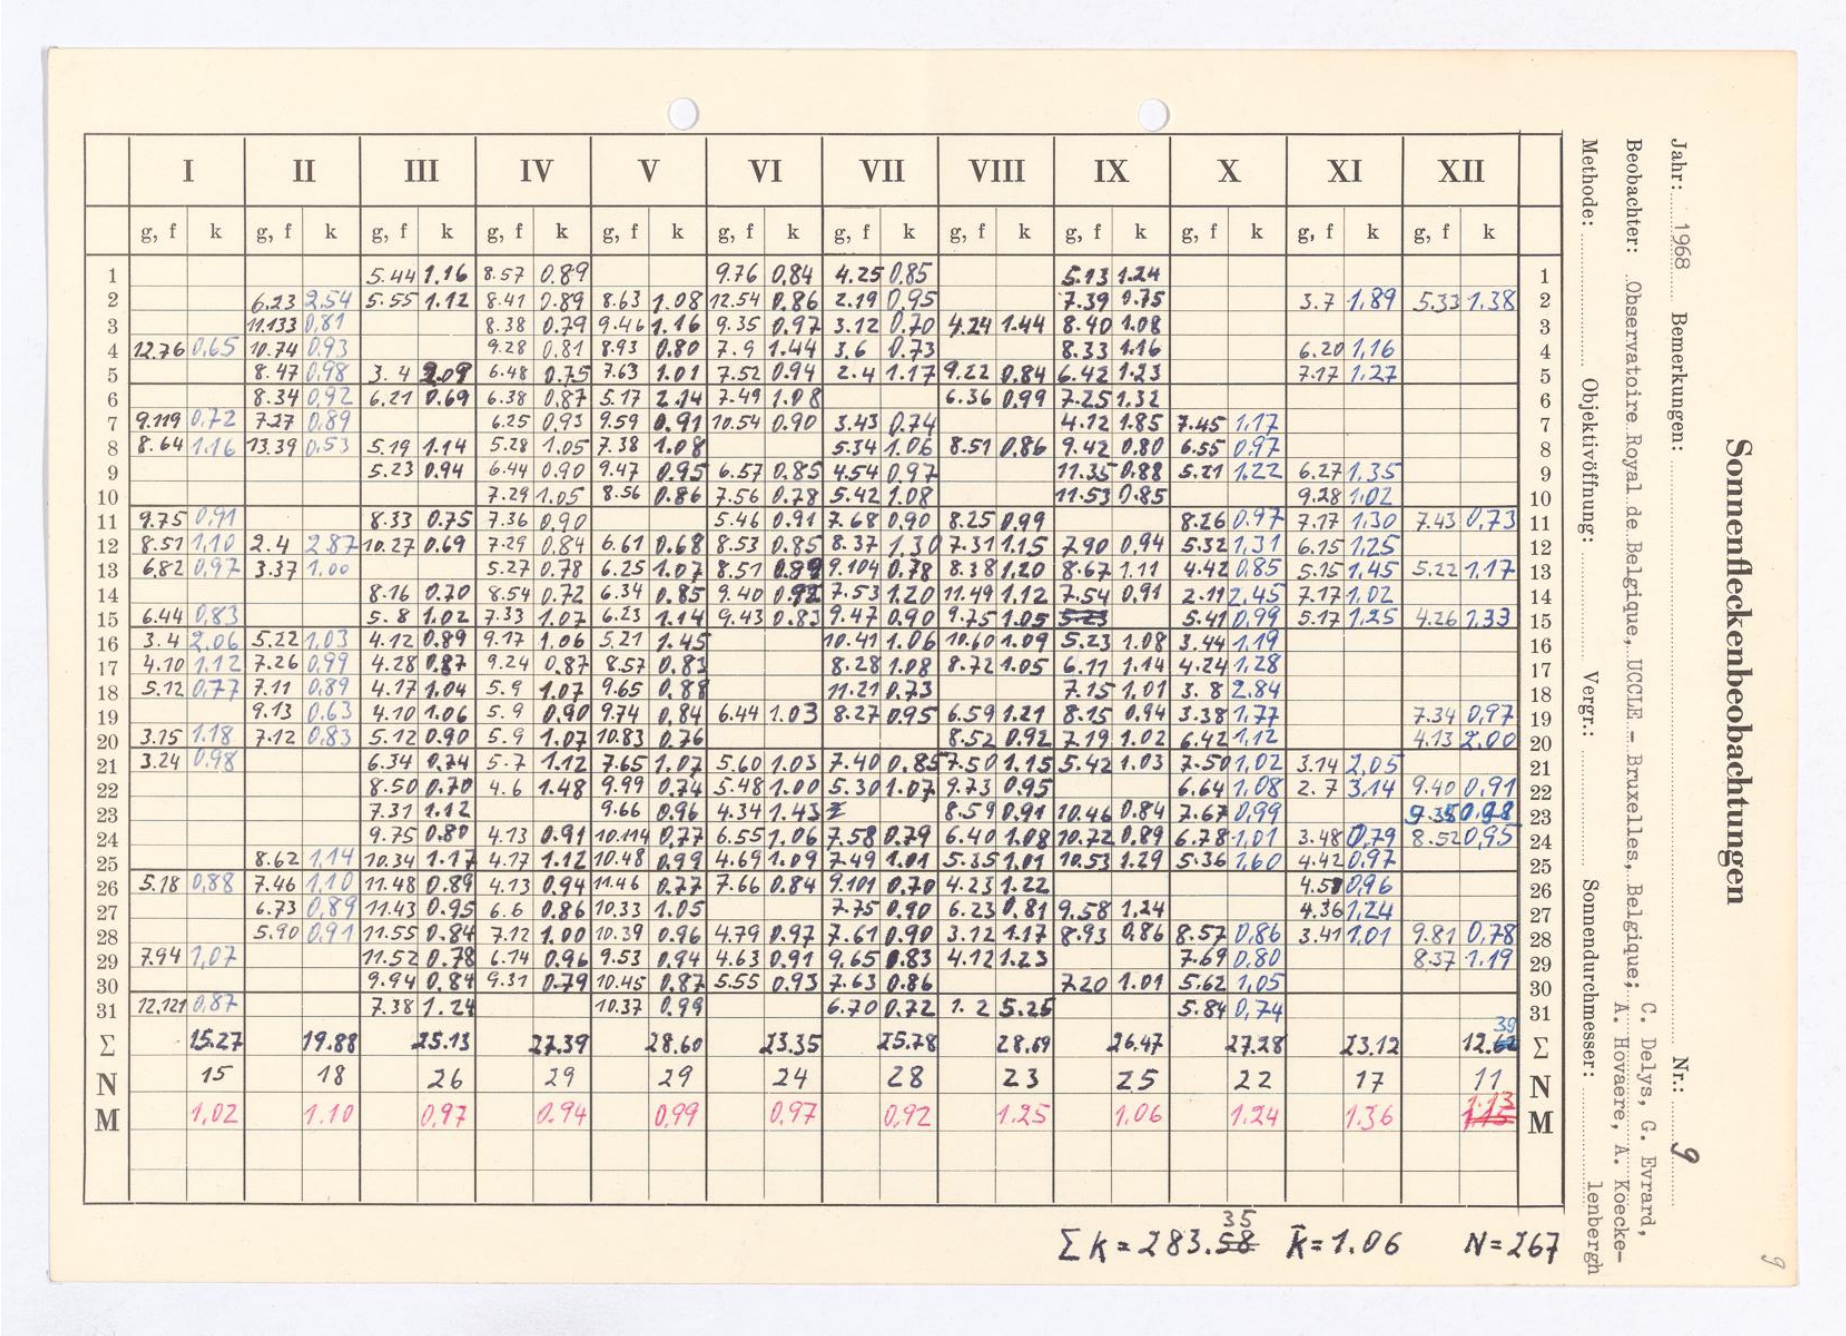 Sonnenfleckenbeobachtungen
Jahr: 1968 Bemerkungen: Nr.: 9
Beobachter: Observatoire Royal de Belgique, UCCLE - Bruxelles, Belgique; C. Delys, G. Evrard,
A. Hovaere, A. Koecke-
lenbergh
Methode: Objektivöffnung: Vergr.: Sonnendurchmesser:
I II III IV V VI VII VIII IX X XI XII
g, f k g, f k g, f k g, f k g, f k g, f k g, f k g, f k g, f k g, f k g, f k g, f k
1 5.44 1.16 8.57 0.89 9.76 0.84 4.25 0.85 5.13 1.24 1
2 6.23 2.54 5.55 1.12 8.41 0.89 8.63 1.08 12.54 0.86 2.19 0.95 7.39 0.75 3.7 1,89 5.33 1.38 2
3 11.133 0,81 8.38 0.79 9.46 1.16 9.35 0.97 3.12 0.70 4.24 1.44 8.40 1.08 3
4 12.76 0,65 10.74 0.93 9.28 0.81 8.93 0.80 7.9 1.44 3.6 0.73 8.33 1.16 6.20 1,16 4
5 8.47 0,98 3.4 2.09 6.48 0.75 7.63 1.01 7.52 0.94 2.4 1.17 9.22 0.84 6.42 1.23 7.17 1,27 5
6 8.34 0,92 6.21 0.69 6.38 0.87 5.17 2.14 7.49 1.08 6.36 0.99 7.25 1.32 6
7 9.119 0,72 7.27 0,89 6.25 0,93 9.59 0.91 10.54 0.90 3.43 0.74 4.12 1.85 7.45 1,17 7
8 8.64 1,16 13.39 0,53 5.19 1.14 5.28 1.05 7.38 1.08 5.34 1.06 8.51 0.86 9.42 0.80 6.55 0,97 8
9 5.23 0.94 6.44 0.90 9.47 0.95 6.57 0.85 4.54 0.97 11.35 0.88 5.21 1,22 6.27 1,35 9
10 7.29 1.05 8.56 0.86 7.56 0.78 5.42 1.08 11.53 0.85 9.28 1,02 10
11 9.75 0,91 8.33 0.75 7.36 0,90 5.46 0.91 7.68 0.90 8.25 0.99 8.26 0.97 7.17 1,30 7.43 0,73 11
12 8.51 1,10 2.4 2,87 10.27 0.69 7.29 0.84 6.61 0.68 8.53 0.85 8.37 1.30 7.31 1.15 7.90 0.94 5.32 1,31 6.15 1,25 12
13 6.82 0,97 3.37 1.00 5.27 0.78 6.25 1.07 8.51 0.89 9.104 0.78 8.38 1.20 8.67 1.11 4.42 0,85 5.15 1,45 5.22 1.17 13
14 8.16 0.70 8.54 0.72 6.34 0.85 9.40 0.92 7.53 1.20 11.49 1.12 7.54 0,91 2.11 2,45 7.17 1,02 14
15 6.44 0,83 5.8 1.02 7.33 1.07 6.23 1.14 9.43 0.83 9.47 0.90 9.75 1.05 5.23 5.41 0,99 5.17 1,25 4.26 1,33 15
16 3.4 2,06 5.22 1,03 4.12 0.89 9.17 1.06 5.21 1.45 10.41 1.06 10.60 1.09 5.23 1.08 3.44 1,19 16
17 4.10 1,12 7.26 0,99 4.28 0.87 9.24 0.87 8.57 0.83 8.28 1.08 8.72 1.05 6.11 1.14 4.24 1,28 17
18 5.12 0,77 7.11 0,89 4.17 1.04 5.9 1.07 9.65 0.88 11.21 0.73 7.15 1.01 3.8 2,84 18
19 9.13 0.63 4.10 1.06 5.9 0.90 9.74 0,84 6.44 1.03 8.27 0.95 6.59 1.21 8.15 0.94 3.38 1,77 7.34 0,97 19
20 3.15 1.18 7.12 0,83 5.12 0.90 5.9 1.07 10.83 0.76 8.52 0.92 7.19 1.02 6.42 1,12 4.13 2.00 20
21 3.24 0,98 6.34 0.74 5.7 1.12 7.65 1.07 5.60 1.03 7.40 0.85 7.50 1.15 5.42 1.03 7.50 1,02 3.14 2,05 21
22 8.50 0.70 4.6 1.48 9.99 0.74 5.48 1.00 5.30 1.07 9.73 0.95 6.64 1,08 2.7 3,14 9.40 0,91 22
23 7.31 1.12 9.66 0.96 4.34 1.43 8.59 0.91 10.46 0.84 7.67 0,99 9.38 0.98 23
24 9.75 0.80 4.13 0.91 10.114 0,77 6.55 1.06 7.58 0.79 6.40 1.08 10.72 0.89 6.78 1,01 3.48 0,79 8.52 0,95 24
25 8.62 1,14 10.34 1.17 4.17 1.12 10.48 0,99 4.69 1.09 7.49 1.01 5.35 1.01 10.53 1.29 5.36 1,60 4.42 0,97 25
26 5.18 0,88 7.46 1,10 11.48 0.89 4.13 0.94 11.46 0.77 7.66 0.84 9.101 0.70 4.23 1.22 4.58 0,96 26
27 6.73 0,89 11.43 0.95 6.6 0.86 10.33 1.05 7.75 0.90 6.23 0.81 9.58 1,24 4.36 1,24 27
28 5.90 0,91 11.55 0.84 7.12 1.00 10.39 0.96 4.79 0.97 7.61 0.90 3.12 1.17 8.93 0,86 8.57 0,86 3.41 1,01 9.81 0,78 28
29 7.94 1,07 11.52 0.78 6.14 0.96 9.53 0.94 4.63 0.91 9,65 0.83 4.12 1.23 7.69 0,80 8.37 1.19 29
30 9.94 0,84 9.31 0.79 10.45 0.87 5.55 0.93 7.63 0.86 7.20 1.01 5.62 1,05 30
31 12.121 0,87 7.38 1.24 10.37 0.99 6.70 0.72 1.2 5.25 5.84 0,74 31
Σ 15.27 19.88 25.13 27.39 28.60 23.35 25.78 28.69 26.47 27.28 23.12 12.62 39 Σ
N 15 18 26 29 29 24 28 23 25 22 17 11 N
M 1,02 1.10 0,97 0.94 0,99 0,97 0,92 1.25 1.06 1.24 1.36 1.15 1.13 M
Σk = 283.58 35 k̄ = 1.06 N = 267
9